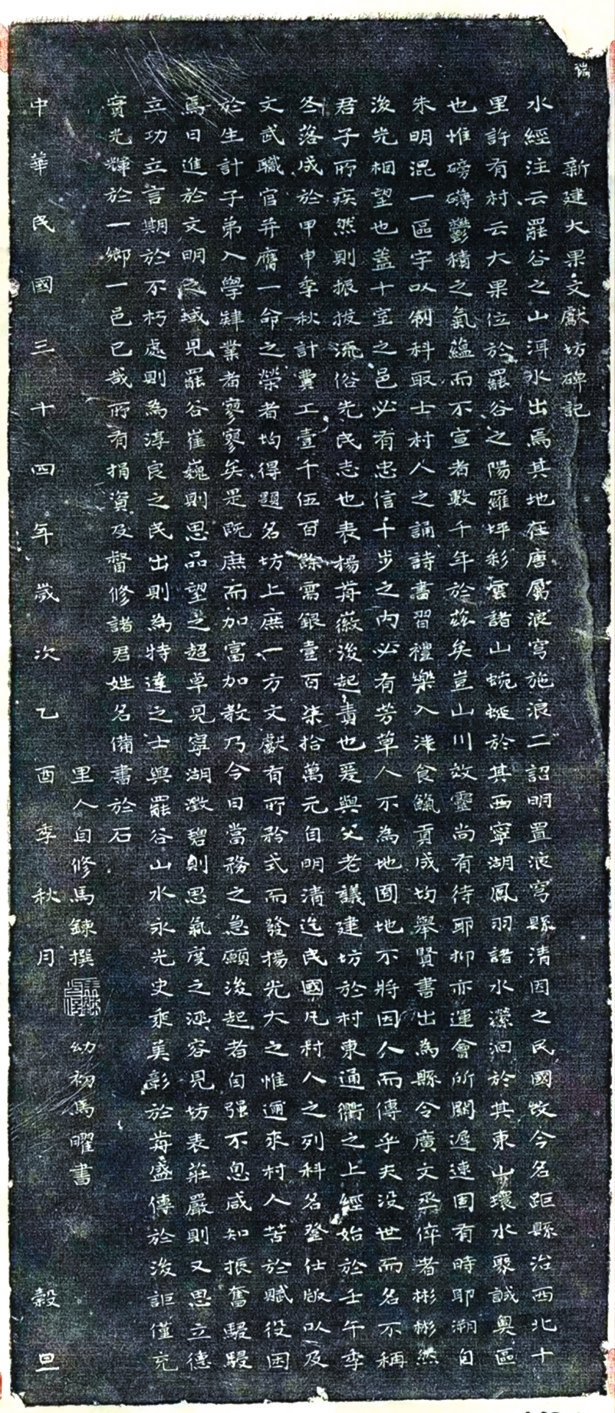 新建大果文獻坊碑記
水經注云罷谷之山洱水出焉其地在唐屬浪穹施浪二詔明置浪穹縣清因之民國改今名距縣治西北十
里許有村云大果位於罷谷之陽羅坪彩雲諸山蜿蜒於其西寧湖鳳羽諸水瀠洄於其東山環水聚誠奧區
也惟磅礴鬱積之氣蘊而不宣者數千年於茲矣豈山川效靈尚有待耶抑亦運會所關遲速固有時耶溯自
朱明混一區宇以制科取士村人之誦詩書習禮樂入泮食餼貢成均舉賢書出為縣令廣文丞倅者彬彬然
後先相望也蓋十室之邑必有忠信十步之內必有芳草人不為地囿地不將因人而傳乎夫沒世而名不稱
君子所疾然則振拔流俗先民志也表揚前徽後起責也爰與父老議建坊於村東通衢之上經始於壬午季
冬落成於甲申季秋計費工壹千伍百餘需銀壹百柒拾萬元自明清迄民國凡村人之列科名登仕版以及
文武職官并膺一命之榮者均得題名坊上庶一方文獻有所矜式而發揚光大之惟邇來村人苦於賦役困
於生計子弟入學肄業者寥寥矣是既庶而加富加教乃今日當務之急願後起者自强不息咸知振奮駸駸
焉日進於文明之域見罷谷崔巍則思品望之超卓見寧湖澂碧則思氣度之涵容見坊表莊嚴則又思立德
立功立言期於不朽處則為淳良之民出則為特達之士與罷谷山水永光史乘美彰於前盛傳於後詎僅充
實光輝於一鄉一邑已哉所有捐資及督修諸君姓名備書於石
里人自修馬鍊撰 幼初馬曜書
中華民國三十四年歲次乙酉季秋月 穀旦